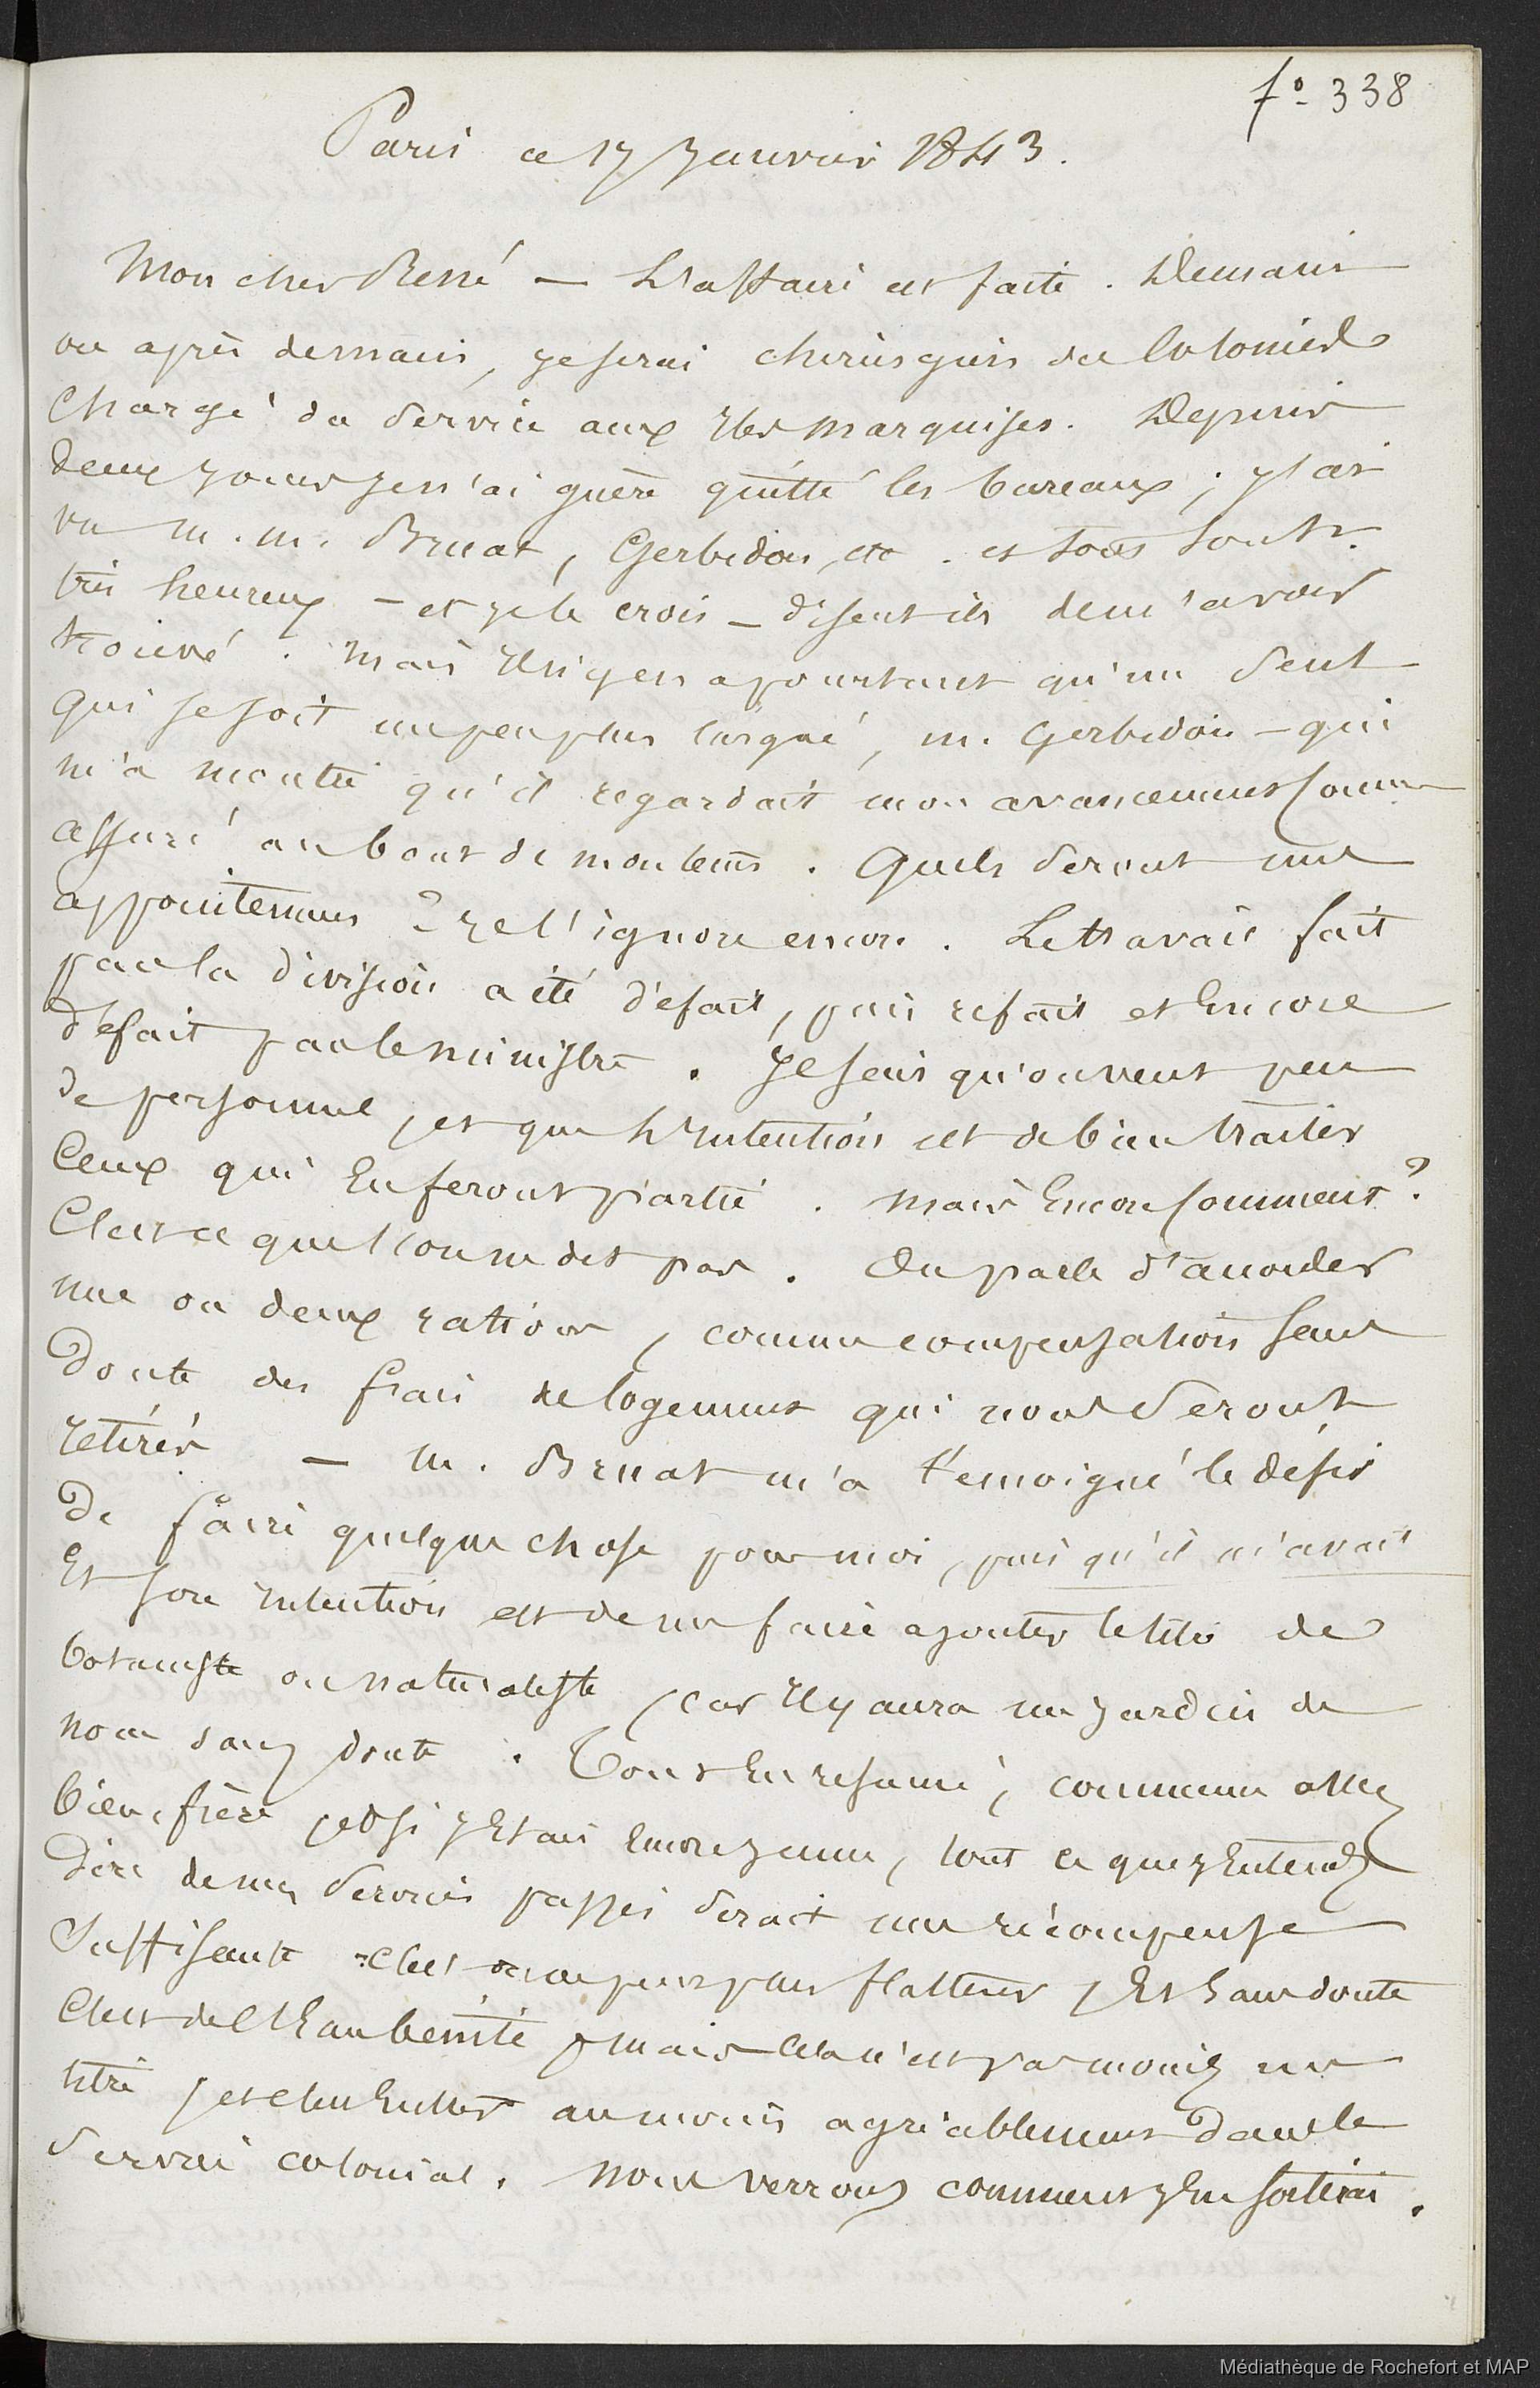 fo 338
Paris ce 17 Janvier 1843.
Mon cher René — L'affaire est faite. Demain
ou après demain, je serai chirurgien des Colonies
Chargé du Service aux Iles Marquises. Depuis
deux jours je n'ai guère quitté les bureaux ; j'ai
vu m.m. Bruat, Gerbidon, etc. et tous sont
très heureux — et je le crois — disent-ils de m'avoir
trouvé. Mais il n'y en a pourtant qu'un seul
qui se soit un peu plus largué, m. Gerbidon — qui
m'a montré qu'il regardait mon avancement comme
assuré au bout de mon tems. Quels seront mes
appointemens ? Je l'ignore encore. Le travail fait
par la division a été défait, puis refait et Encore
défait par le ministre. Je sais qu'on veut peu
de personnel, et que L'Intention est de bien traiter
Ceux qui En feront partie. Mais Encore comment ?
C'est ce que l'on ne dit pas. On parle d'accorder
une ou deux rations, comme compensation sans
doute des frais de logement qui nous seront
retirés — m. Bruat m'a témoigné le désir
de faire quelque chose pour moi, puis qu'il m'avait
Et son Intention est de me faire ajouter le titre de
botaniste ou naturaliste, car Il y aura un Jardin de
nom sans doute. Tout En résumé, commence assez
bien, frère, et si J'Etais Encore jeune, tout ce que J'Entends
dire de mes Services passés serait une récompense
Suffisante. C'est on ne peut plus flatteur, Et Sans doute
C'est de l'Eau bénite, mais cela n'est pas moins un
titre, et c'est Entrer au moins agréablement dans le
Service colonial. Nous verrons comment J'En sortirai.
Médiathèque de Rochefort et MAP